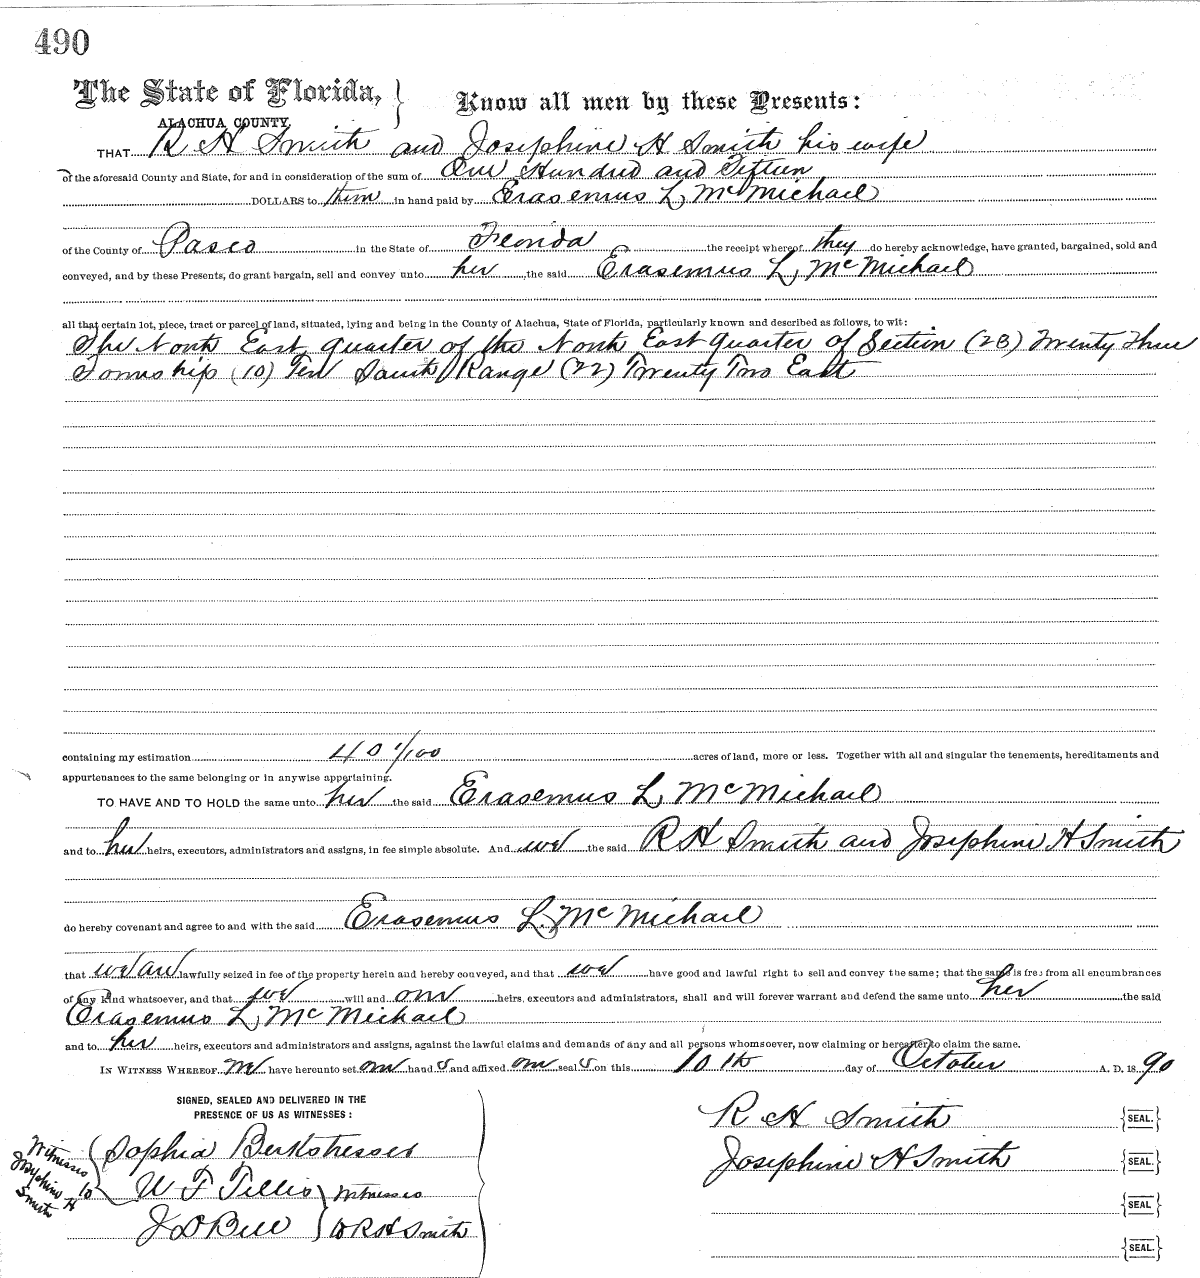 490
The State of Florida, } Know all men by these Presents:
ALACHUA COUNTY.
THAT R H Smith and Josephine H Smith his wife
of the aforesaid County and State, for and in consideration of the sum of One Hundred and Fifteen
DOLLARS to them in hand paid by Erasemus L, McMichael
of the County of Pasco in the State of Florida the receipt whereof they do hereby acknowledge, have granted, bargained, sold and
conveyed, and by these Presents, do grant bargain, sell and convey unto her the said Erasemus L, McMichael
all that certain lot, piece, tract or parcel of land, situated, lying and being in the County of Alachua, State of Florida, particularly known and described as follows, to wit:
The North East quarter of the North East quarter of Section (23) Twenty Three
Township (10) Ten South Range (22) Twenty Two East
containing my estimation 40 1/100 acres of land, more or less. Together with all and singular the tenements, hereditaments and
appurtenances to the same belonging or in anywise appertaining.
TO HAVE AND TO HOLD the same unto her the said Erasemus L, McMichael
and to her heirs, executors, administrators and assigns, in fee simple absolute. And we the said R H Smith and Josephine H Smith
do hereby covenant and agree to and with the said Erasemus L, McMichael
that we are lawfully seized in fee of the property herein and hereby conveyed, and that we have good and lawful right to sell and convey the same; that the same is free from all encumbrances
of any kind whatsoever, and that we will and our heirs, executors and administrators, shall and will forever warrant and defend the same unto her the said
Erasemus L, McMichael
and to her heirs, executors and administrators and assigns, against the lawful claims and demands of any and all persons whomsoever, now claiming or hereafter to claim the same.
IN WITNESS WHEREOF We have hereunto set our hand s and affixed our seal s on this 10th day of October A. D. 1890
SIGNED, SEALED AND DELIVERED IN THE
PRESENCE OF US AS WITNESSES:
R H Smith {SEAL.}
Sophia Berkstresser
Witnesses to Josephine H Smith
Josephine H Smith {SEAL.}
W F Tillis } Witnesses
{SEAL}
J D Bell } to R H Smith
{SEAL.}